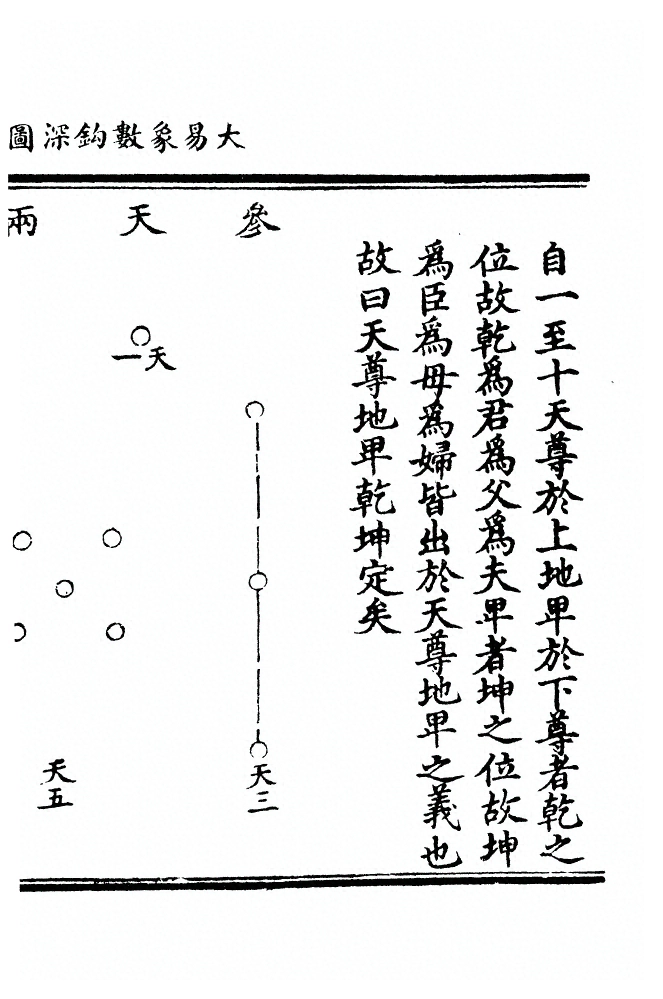 大易象數鈎深圖
自一至十天尊於上地卑於下尊者乾之
位故乾爲君爲父爲夫卑者坤之位故坤
爲臣爲母爲婦皆出於天尊地卑之義也
故曰天尊地卑乾坤定矣
參天兩
天三
天一
天五